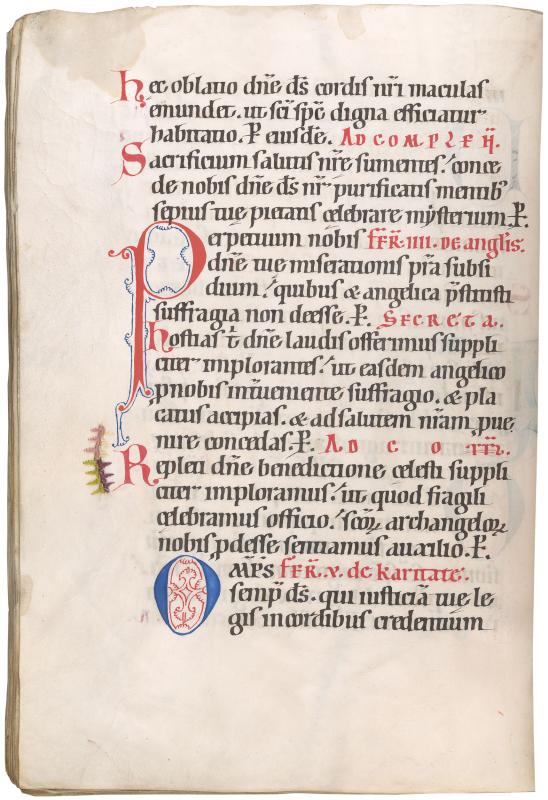 hec oblatio dñe d̄s cordis nr̄i maculas
emundet. ut sc̄i sp̄c digna efficiatur
habitatio. P̄. eiusdē. AD COMPLEH̄.
Sacrificium salutis nr̄e sumentes. conce
de nobis dñe d̄s nr̄ purificatis mentib;
sepius tue pietatis celebrare mysterium. P̄.
Perpetuum nobis FER̄. IIII. DE anglis.
dñe tue miserationis p̄ra subsi
dium. quibus & angelica p̄stitisti
suffragia non deesse. P̄. SECRETA.
hostias t̄ dñe laudis offerimus suppli
citer implorantes. ut easdem angelico
ꝓ nobis int̄ueniente suffragio. & pla
catus accipias. & ad salutem nr̄am ꝓue
nire concedas. P̄. AD CO
Repleti dñe benedictione celesti suppli
citer imploramus. ut quod fragili
celebramus officio. sc̄oꝝ archangeloꝝ
nobis ꝓdesse sentiamus auxilio. P̄.
OMP̄S FER̄. V. de karitate.
semp̄ d̄s. qui iusticiā tue le
gis in cordibus credentium